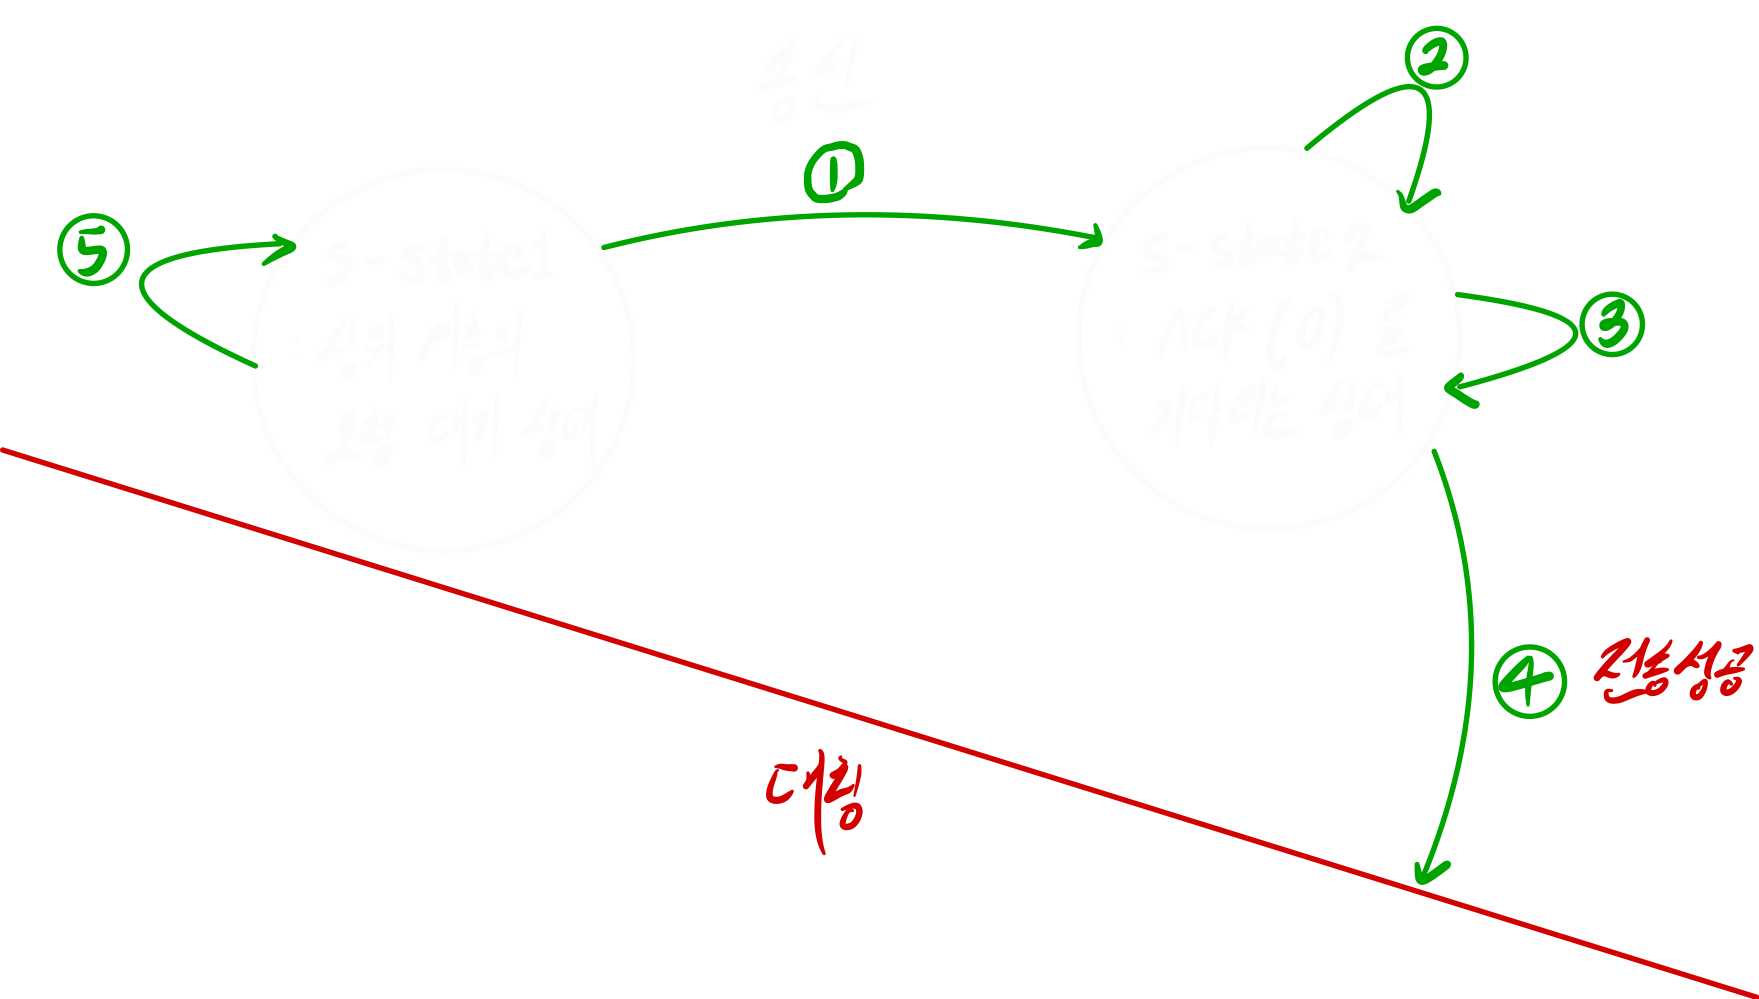 송신
②
①
⑤
s-state1
: 상위 계층의
요청 대기 상태
s-state2
: ACK(0)를
기다리는 상태
③
④ 전송성공
대칭